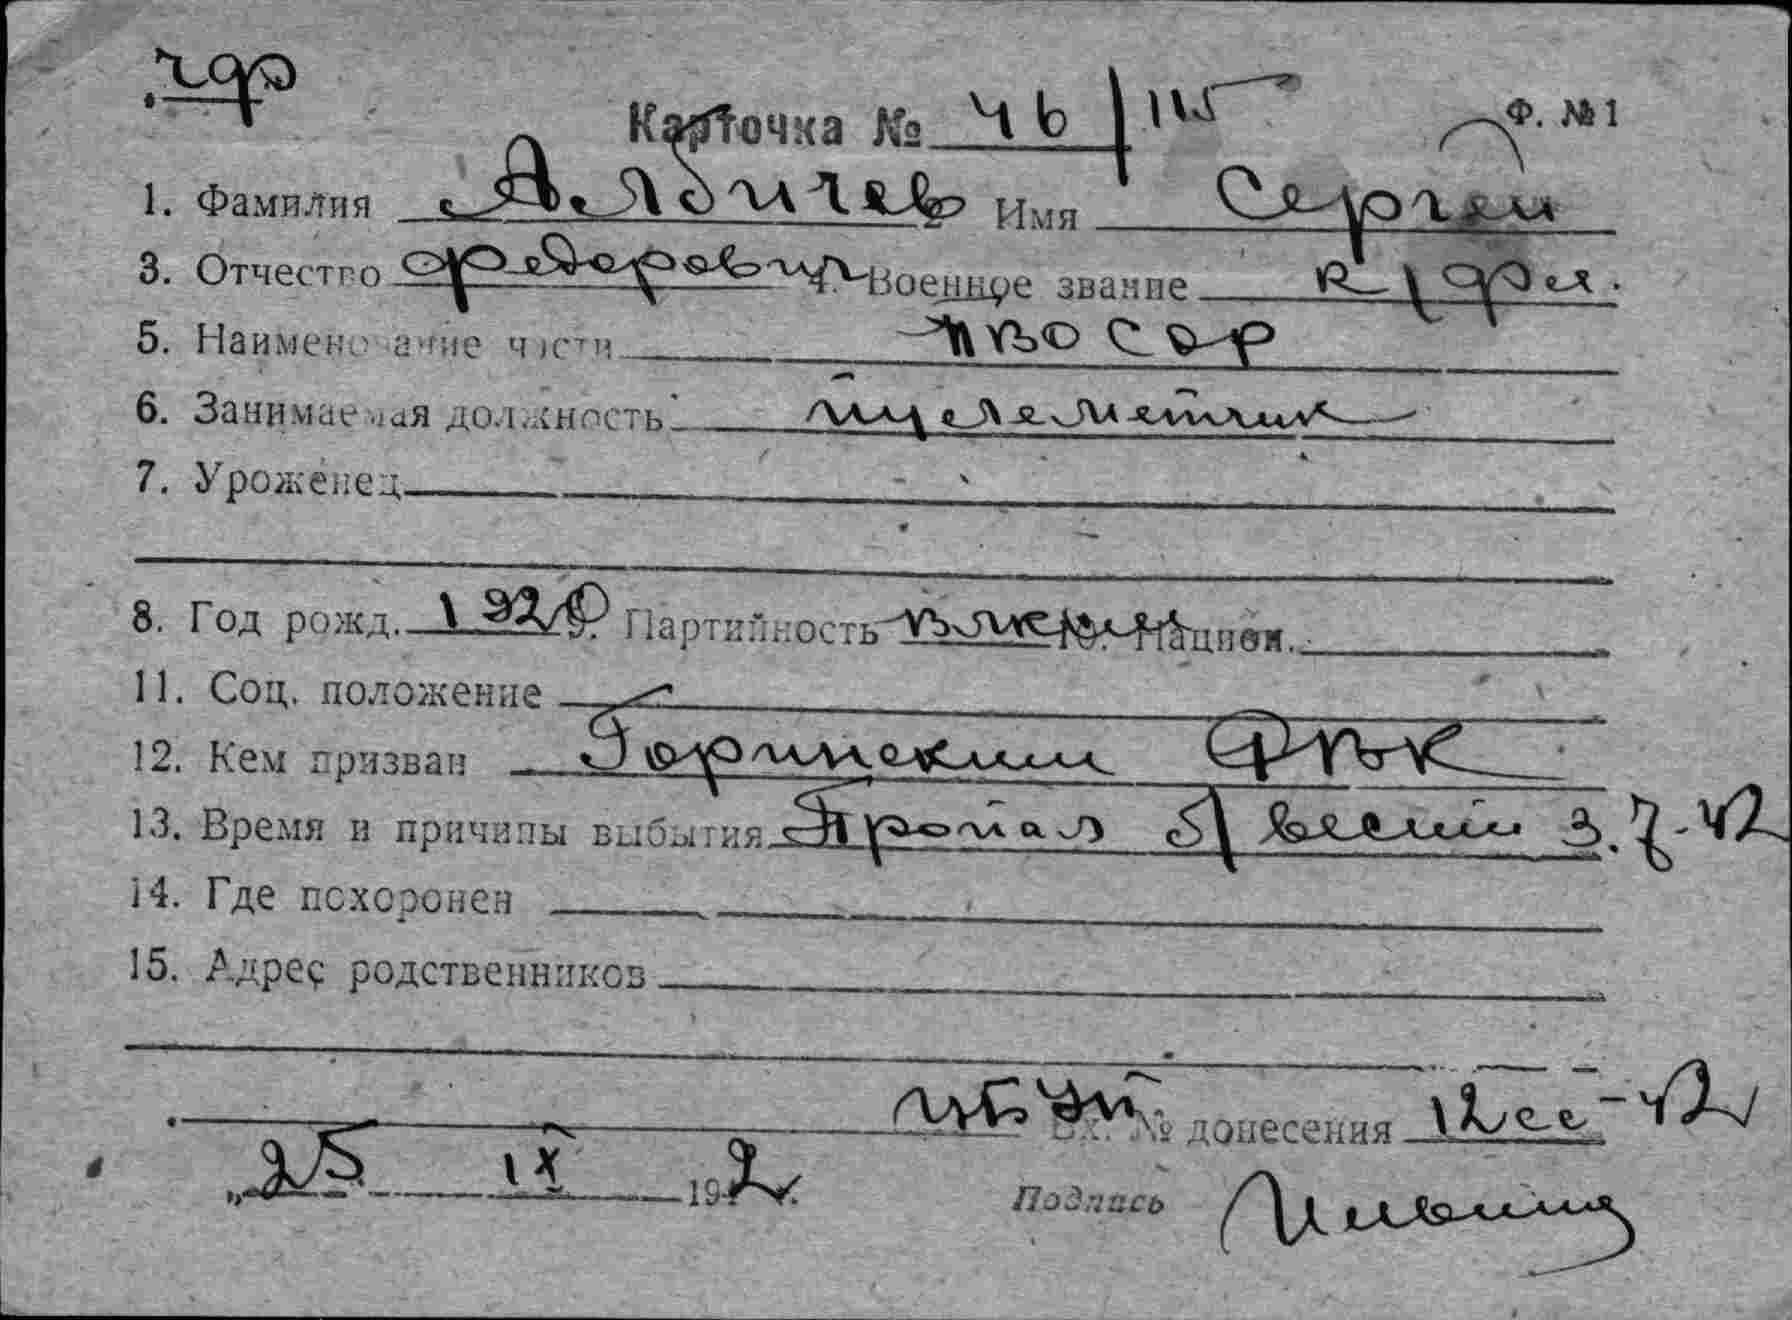 Карточка № 46/115 Ф. № 1
1. Фамилия Алябичев 2. Имя Сергей
3. Отчество Федорович 4. Военное звание к/фл.
5. Наименование части
6. Занимаемая должность пулеметчик
7. Уроженец
8. Год рожд. 1920 9. Партийность влксм 10. Национ.
11. Соц. положение
12. Кем призван Горинским РВК
13. Время и причины выбытия Пропал б/вести 3.7.42
14. Где похоронен
15. Адрес родственников
Вх. № донесения 12сс-42
„25 IX 1942
Подпись